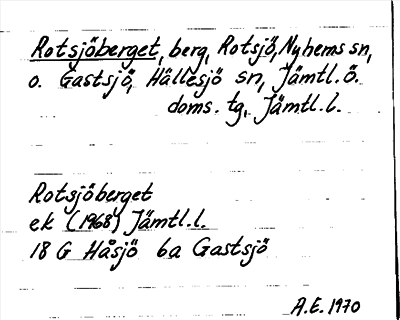 Rotsjöberget, berg, Rotsjö, Nyhems sn,
o. Gastsjö, Hällesjö sn, Jämtl. ö.
doms. tg, Jämtl. l.
Rotsjöberget
ek (1968) Jämtl. l.
18 G Håsjö 6a Gastsjö
A.E. 1970